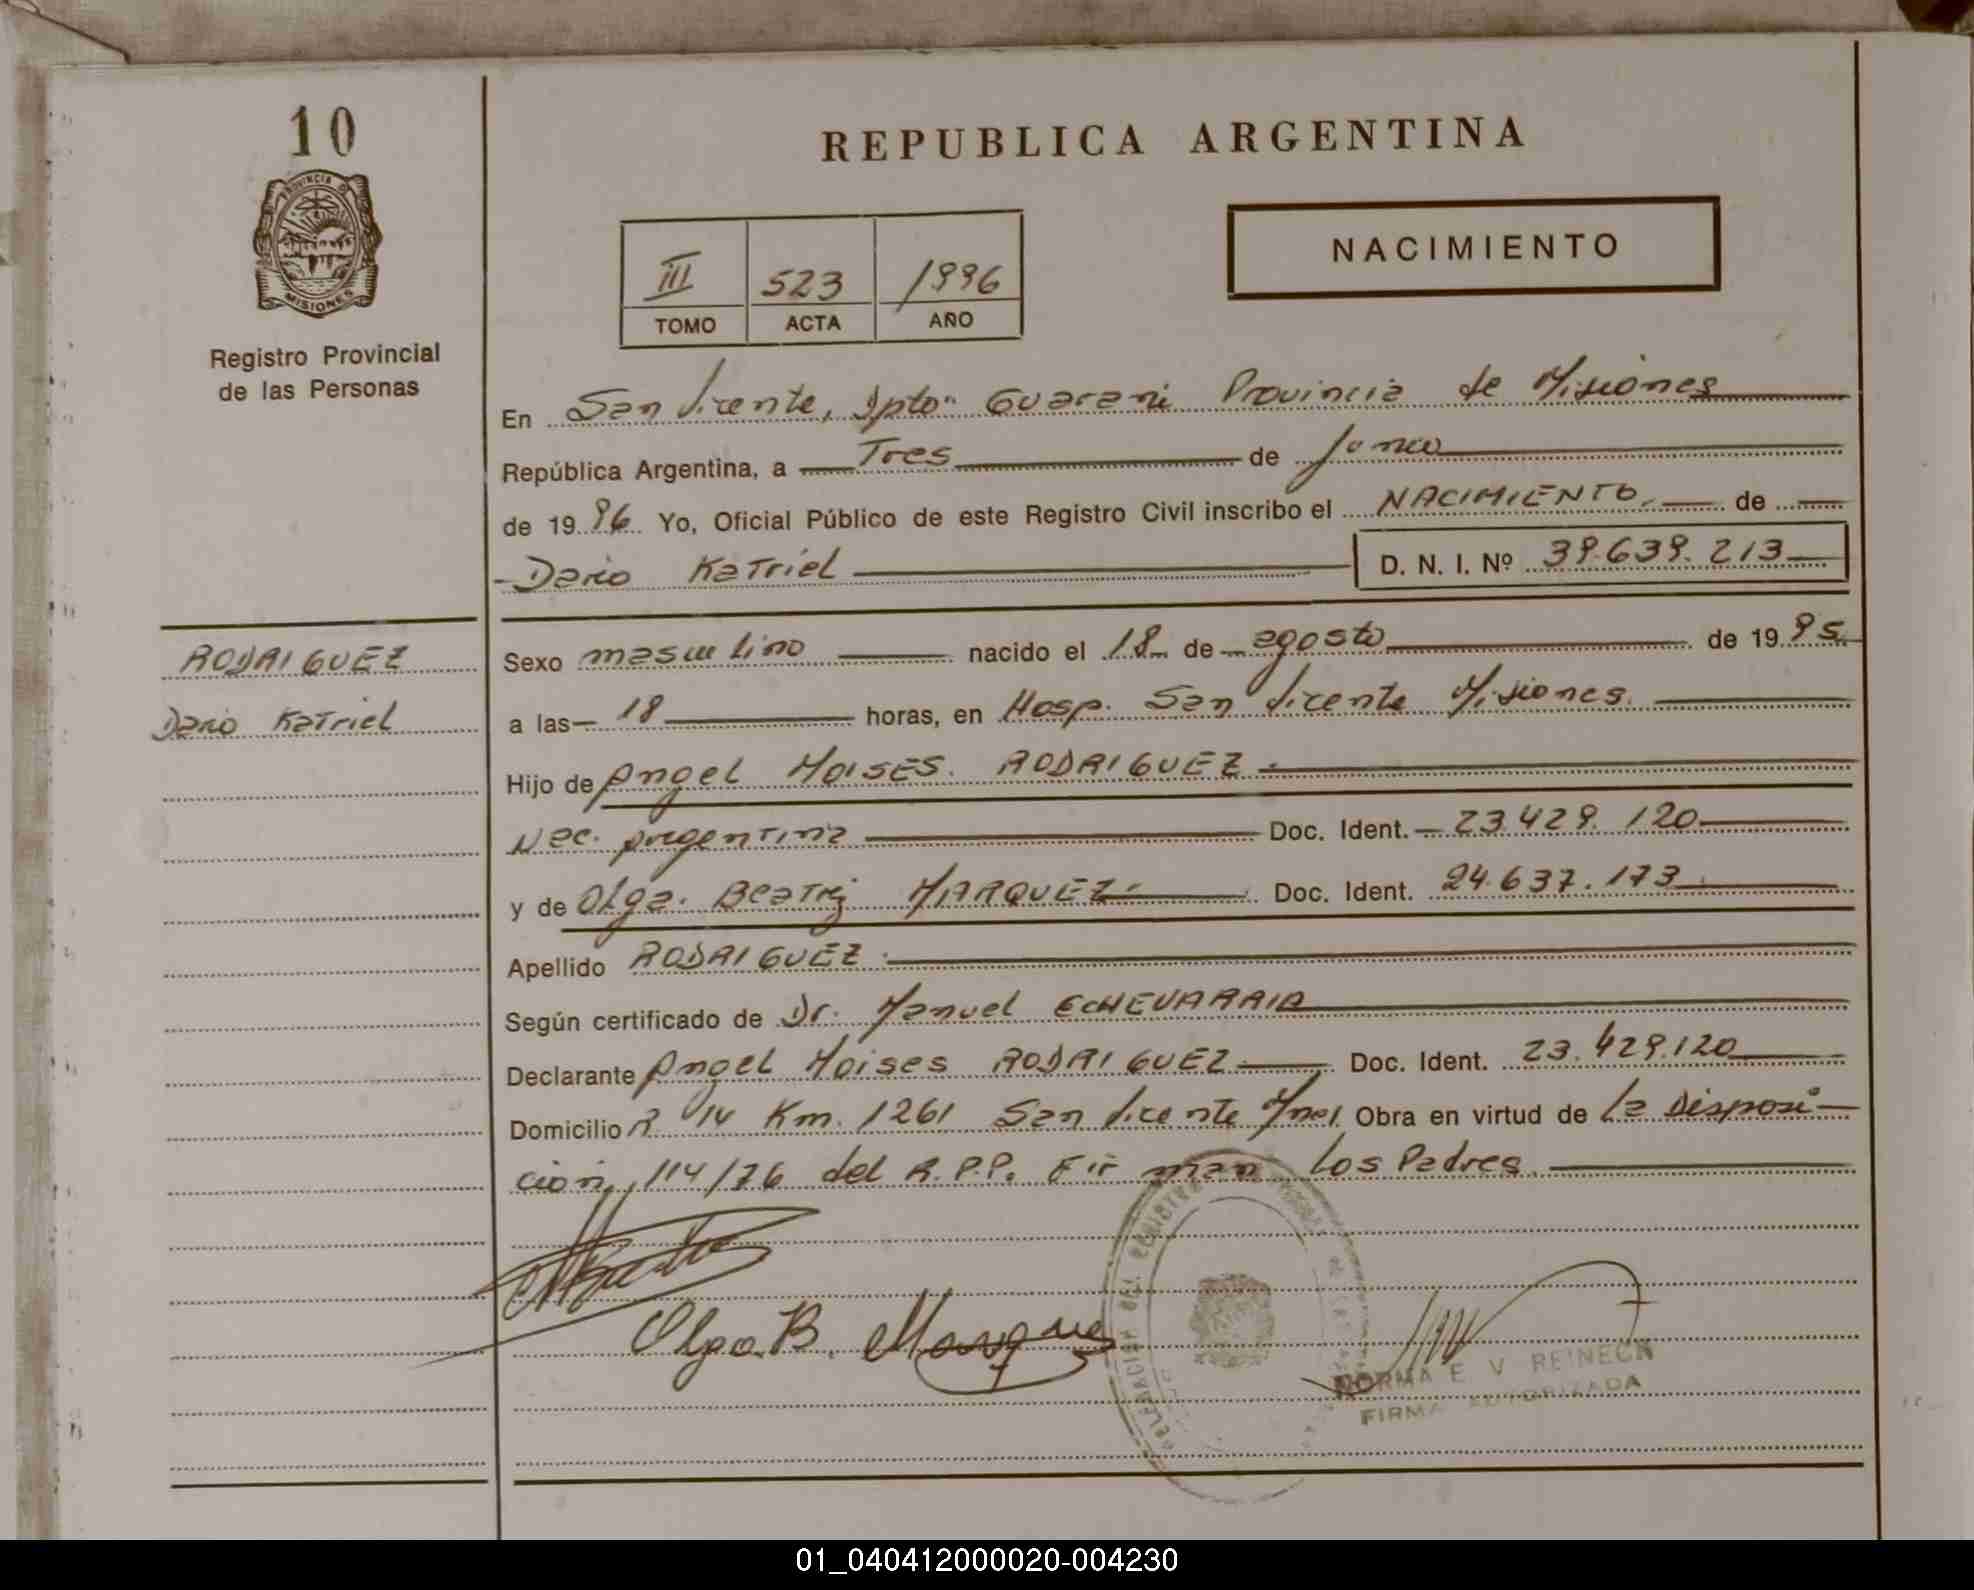 10
PROVINCIA DE
MISIONES
Registro Provincial
de las Personas
REPUBLICA ARGENTINA
III 523 1996
TOMO ACTA AÑO
NACIMIENTO
En San Vicente, Dpto Guarani Provincia de Misiones
República Argentina, a Tres de Junio
de 1996 Yo, Oficial Público de este Registro Civil inscribo el NACIMIENTO. de
Dario Katriel D. N. I. Nº 39.639.213
RODRIGUEZ
Dario Katriel
Sexo masculino nacido el 18 de agosto de 1995
a las 18 horas, en Hosp. San Vicente Misiones.
Hijo de Angel MOISES. RODRIGUEZ
Nac. Argentina Doc. Ident. 23.429.120
y de Olga. Beatriz MARQUEZ Doc. Ident. 24.637.173
Apellido RODRIGUEZ
Según certificado de Dr. Manuel ECHEVARRIA
Declarante Angel Moises RODRIGUEZ Doc. Ident. 23.429.120
Domicilio R 14 Km. 1261 San Vicente Mnes Obra en virtud de la Disposi-
cion, 114/76 del R.P.P. Firman los Padres.
Olga B. Marquez
DELEGACION DEL REGISTRO
NORMA E. V. REINECK
FIRMA AUTORIZADA
01_040412000020-004230